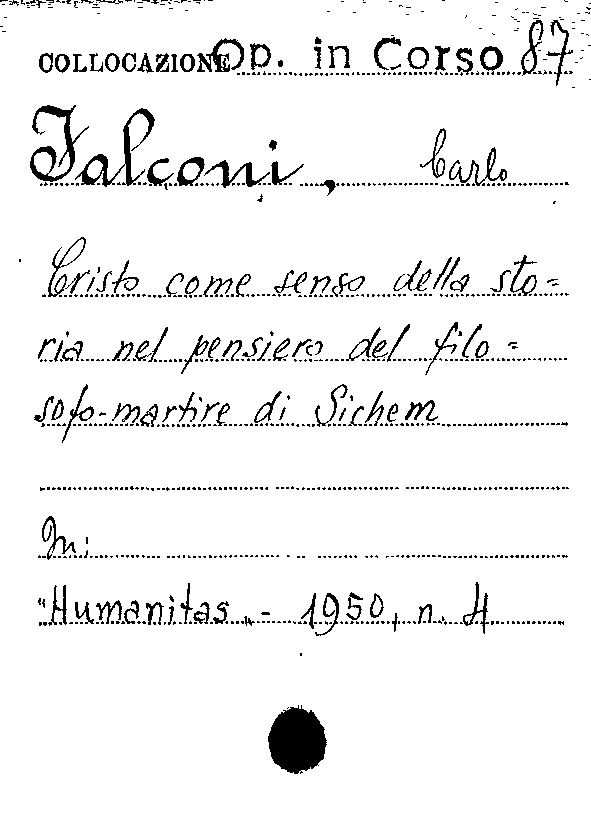 COLLOCAZIONE Op. in Corso 87
Falconi, Carlo
Cristo come senso della sto=
ria nel pensiero del filo=
sofo-martire di Sichem
In:
"Humanitas„ - 1950, n. 4